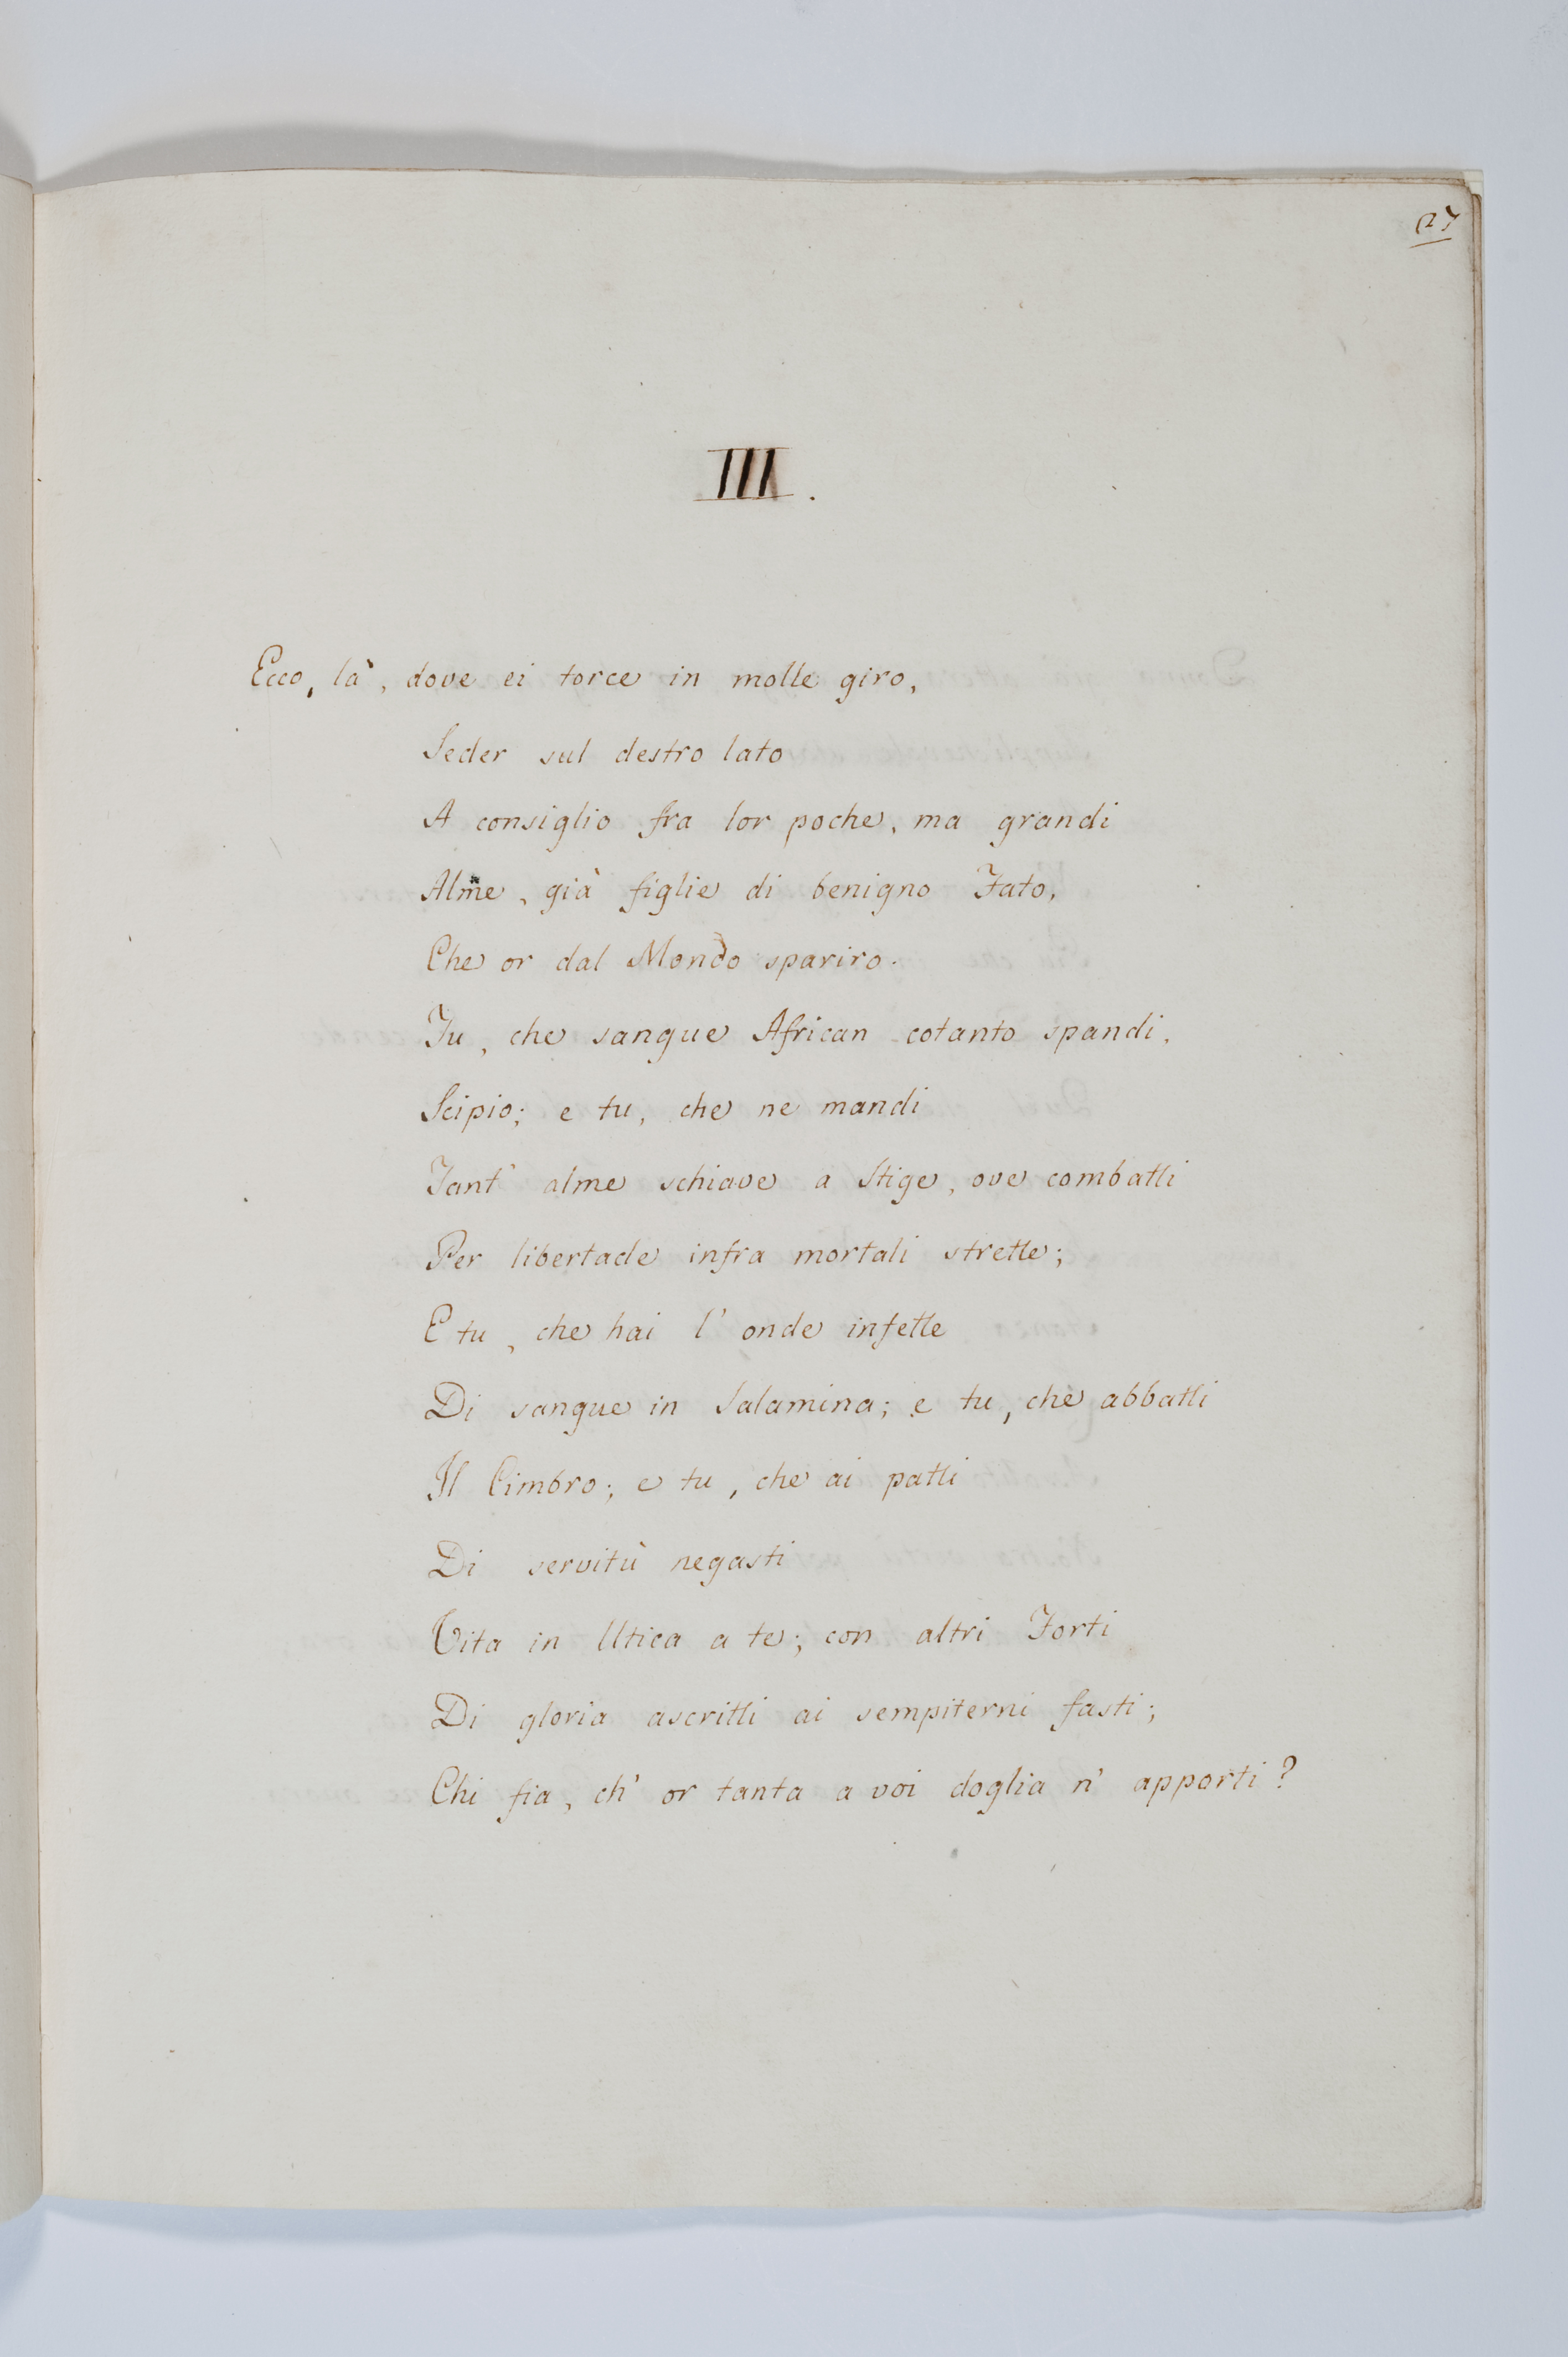 27
III.
Ecco, là, dove ei torce in molle giro,
Seder sul destro lato
A consiglio fra lor poche, ma grandi
Alme, già figlie di benigno Fato,
Che or dal Mondo spariro.
Tu, che sangue African cotanto spandi,
Scipio; e tu, che ne mandi
Tant' alme schiave a Stige, ove combatti
Per libertade infra mortali strette;
E tu, che hai l' onde infette
Di sangue in Salamina; e tu, che abbatti
Il Cimbro; e tu, che ai patti
Di servitù negasti
Vita in Utica a te; con altri Forti
Di gloria ascritti ai sempiterni fasti;
Chi fia, ch' or tanta a voi doglia n' apporti?